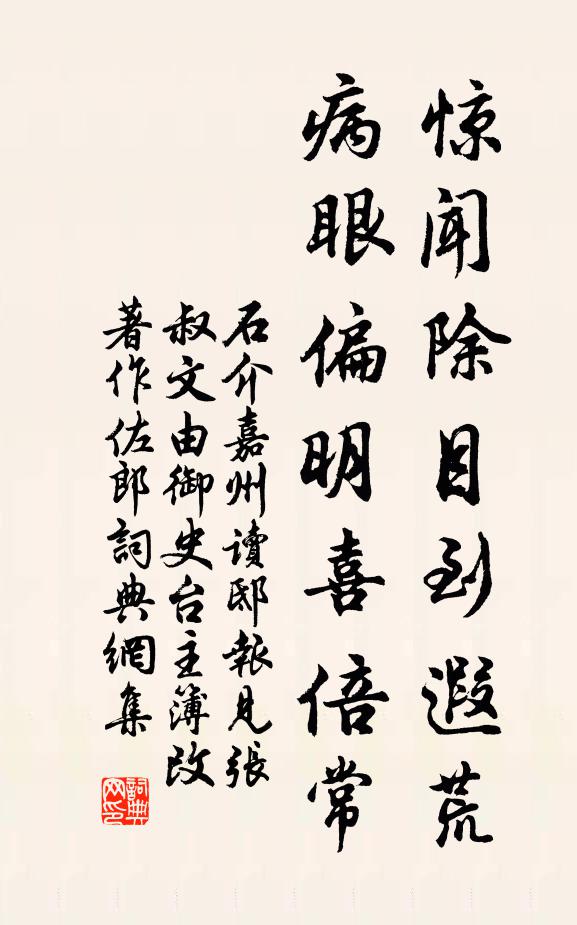 惊闻除目到遐荒
病眼偏明喜倍常
石介嘉州讀邸報見張
叔文由御史台主簿改
著作佐郎詞典網集
詞典
网印